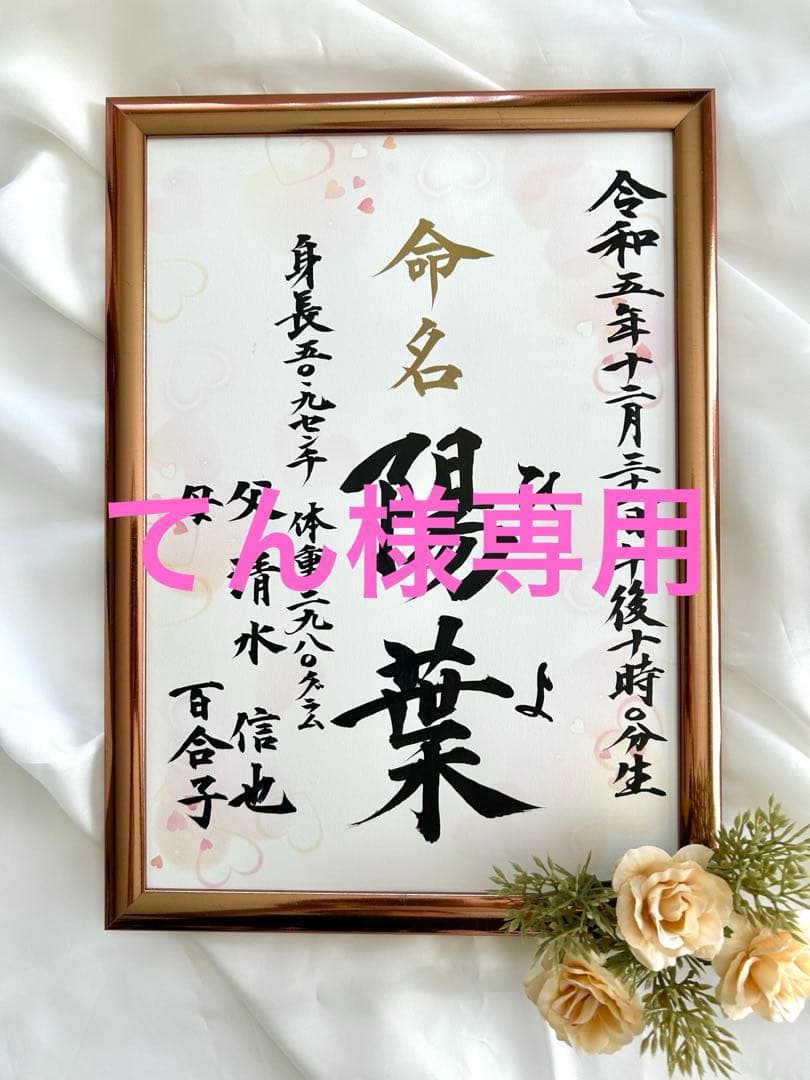 令和五年十二月三十日午後十時〇分生
ひ
よ
命名
陽葉
身長五〇・九センチ
体重二九八〇グラム
父 清水 信也
母 百合子
てん様専用